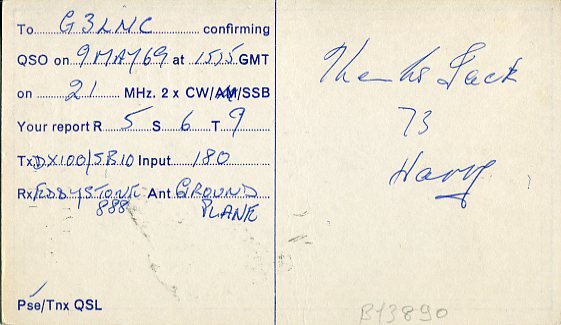 To G3LNC confirming
QSO on 9 MAY 69 at 1515 GMT
on 21 MHz. 2 x CW/AM/SSB
Your report R 5 S 6 T 9
Tx DX100/SB10 Input 180
Rx EDDYSTONE 888 Ant GROUND PLANE
Pse/Tnx QSL
Thanks Jack
73
Harry
B13890